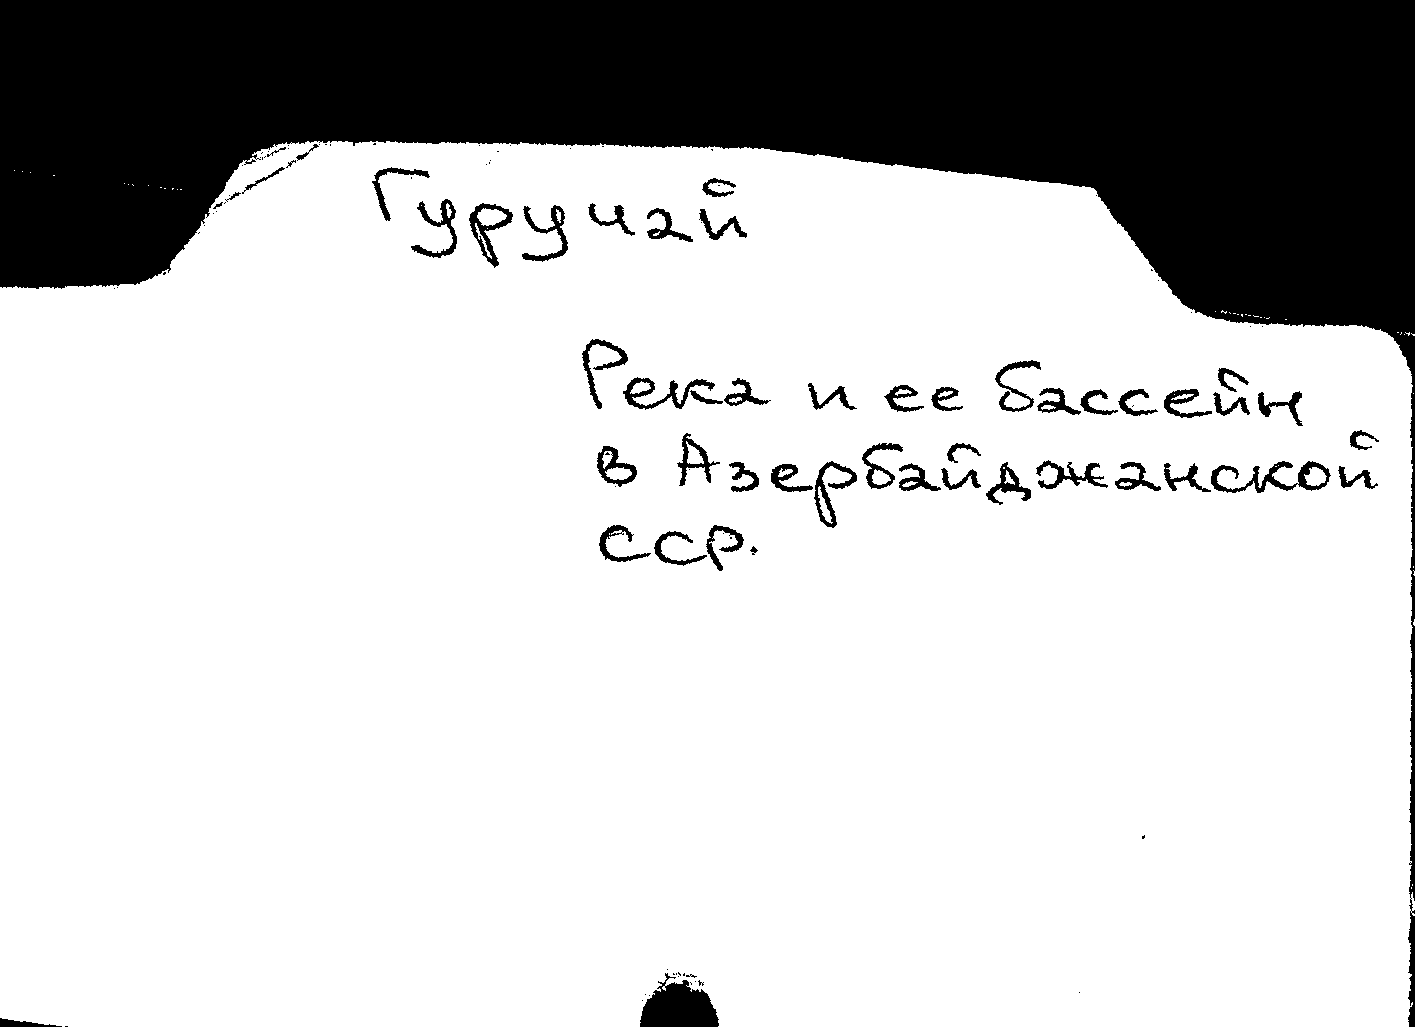 Гуручай
Река и ее бассейн
в Азербайджанской
ССР.